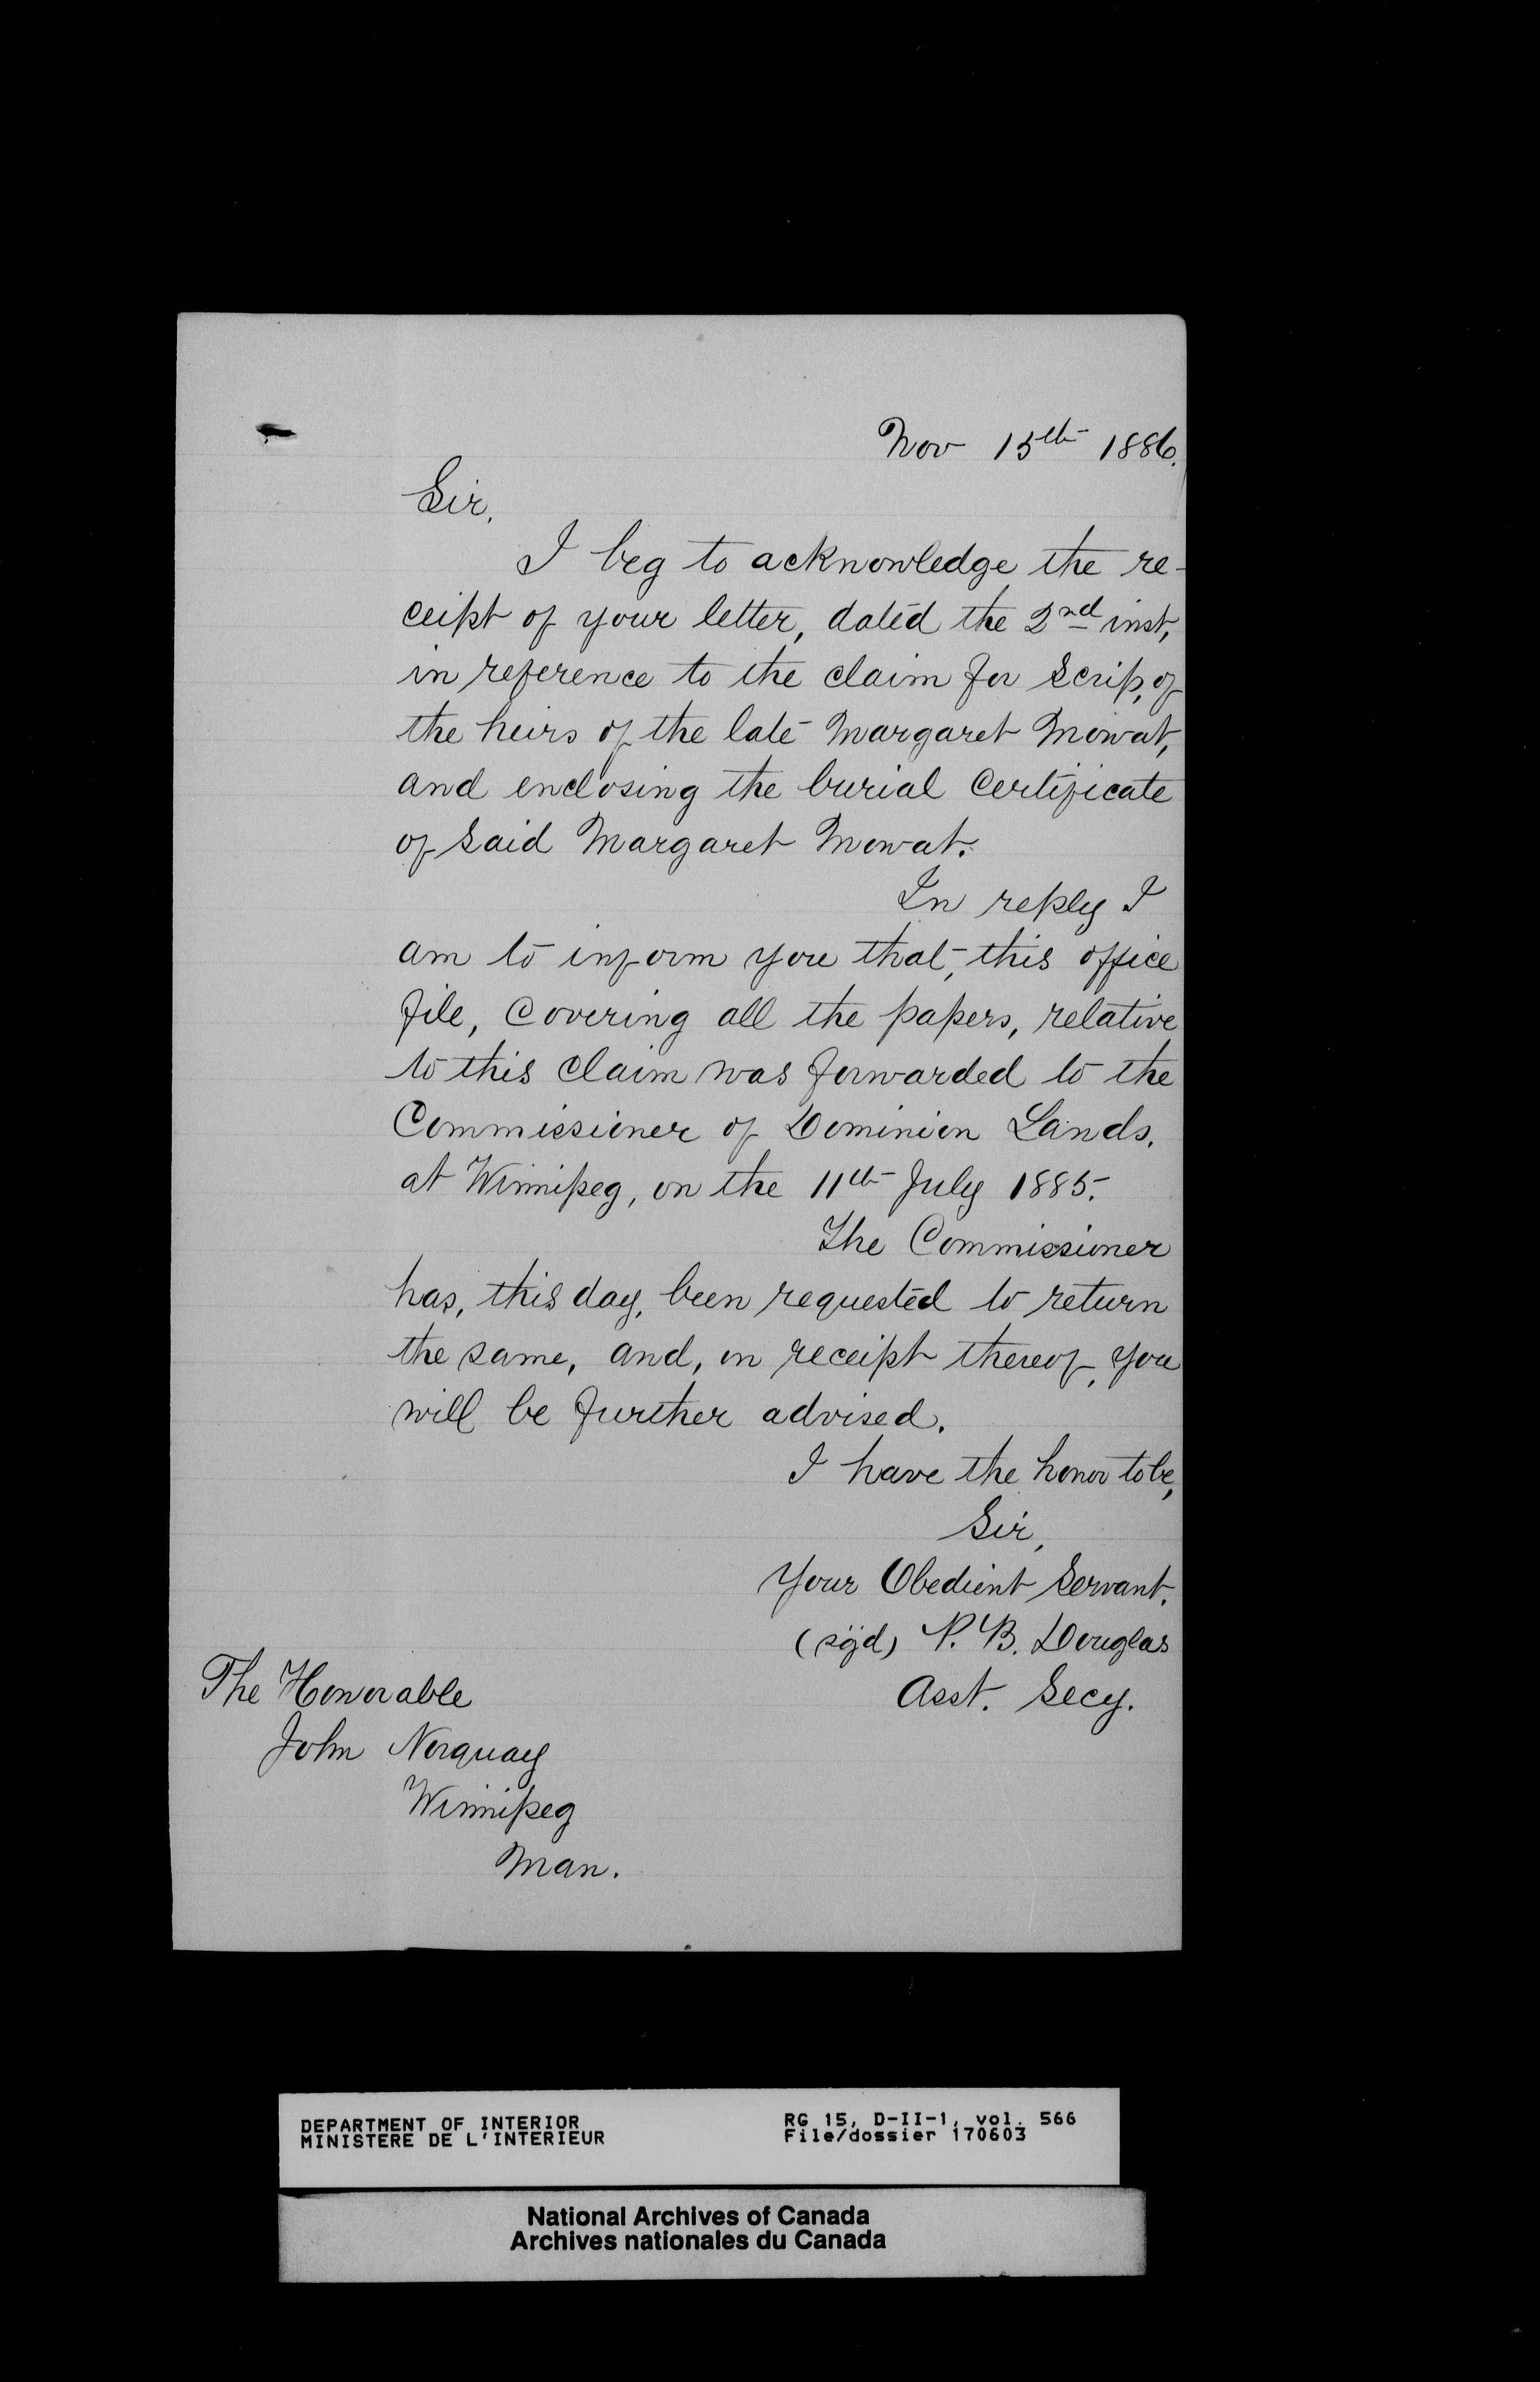 Nov 15th 1886.
Sir,
I beg to acknowledge the re-
ceipt of your letter, dated the 2nd inst,
in reference to the claim for Scrip, of
the heirs of the late Margaret Mowat,
and enclosing the burial Certificate
of said Margaret Mowat.
In reply I
am to inform you that, this office
file, covering all the papers, relative
to this claim was forwarded to the
Commissioner of Dominion Lands,
at Winnipeg, on the 11th July 1885.
The Commissioner
has, this day, been requested to return
the same, and, on receipt thereof, you
will be further advised.
I have the honor to be,
Sir,
Your Obedient Servant.
(sgd) P. B. Douglas
Asst. Secy.
The Honorable
John Norquay
Winnipeg
Man.
DEPARTMENT OF INTERIOR
MINISTERE DE L'INTERIEUR
RG 15, D-II-1, vol. 566
File/dossier 170603
National Archives of Canada
Archives nationales du Canada